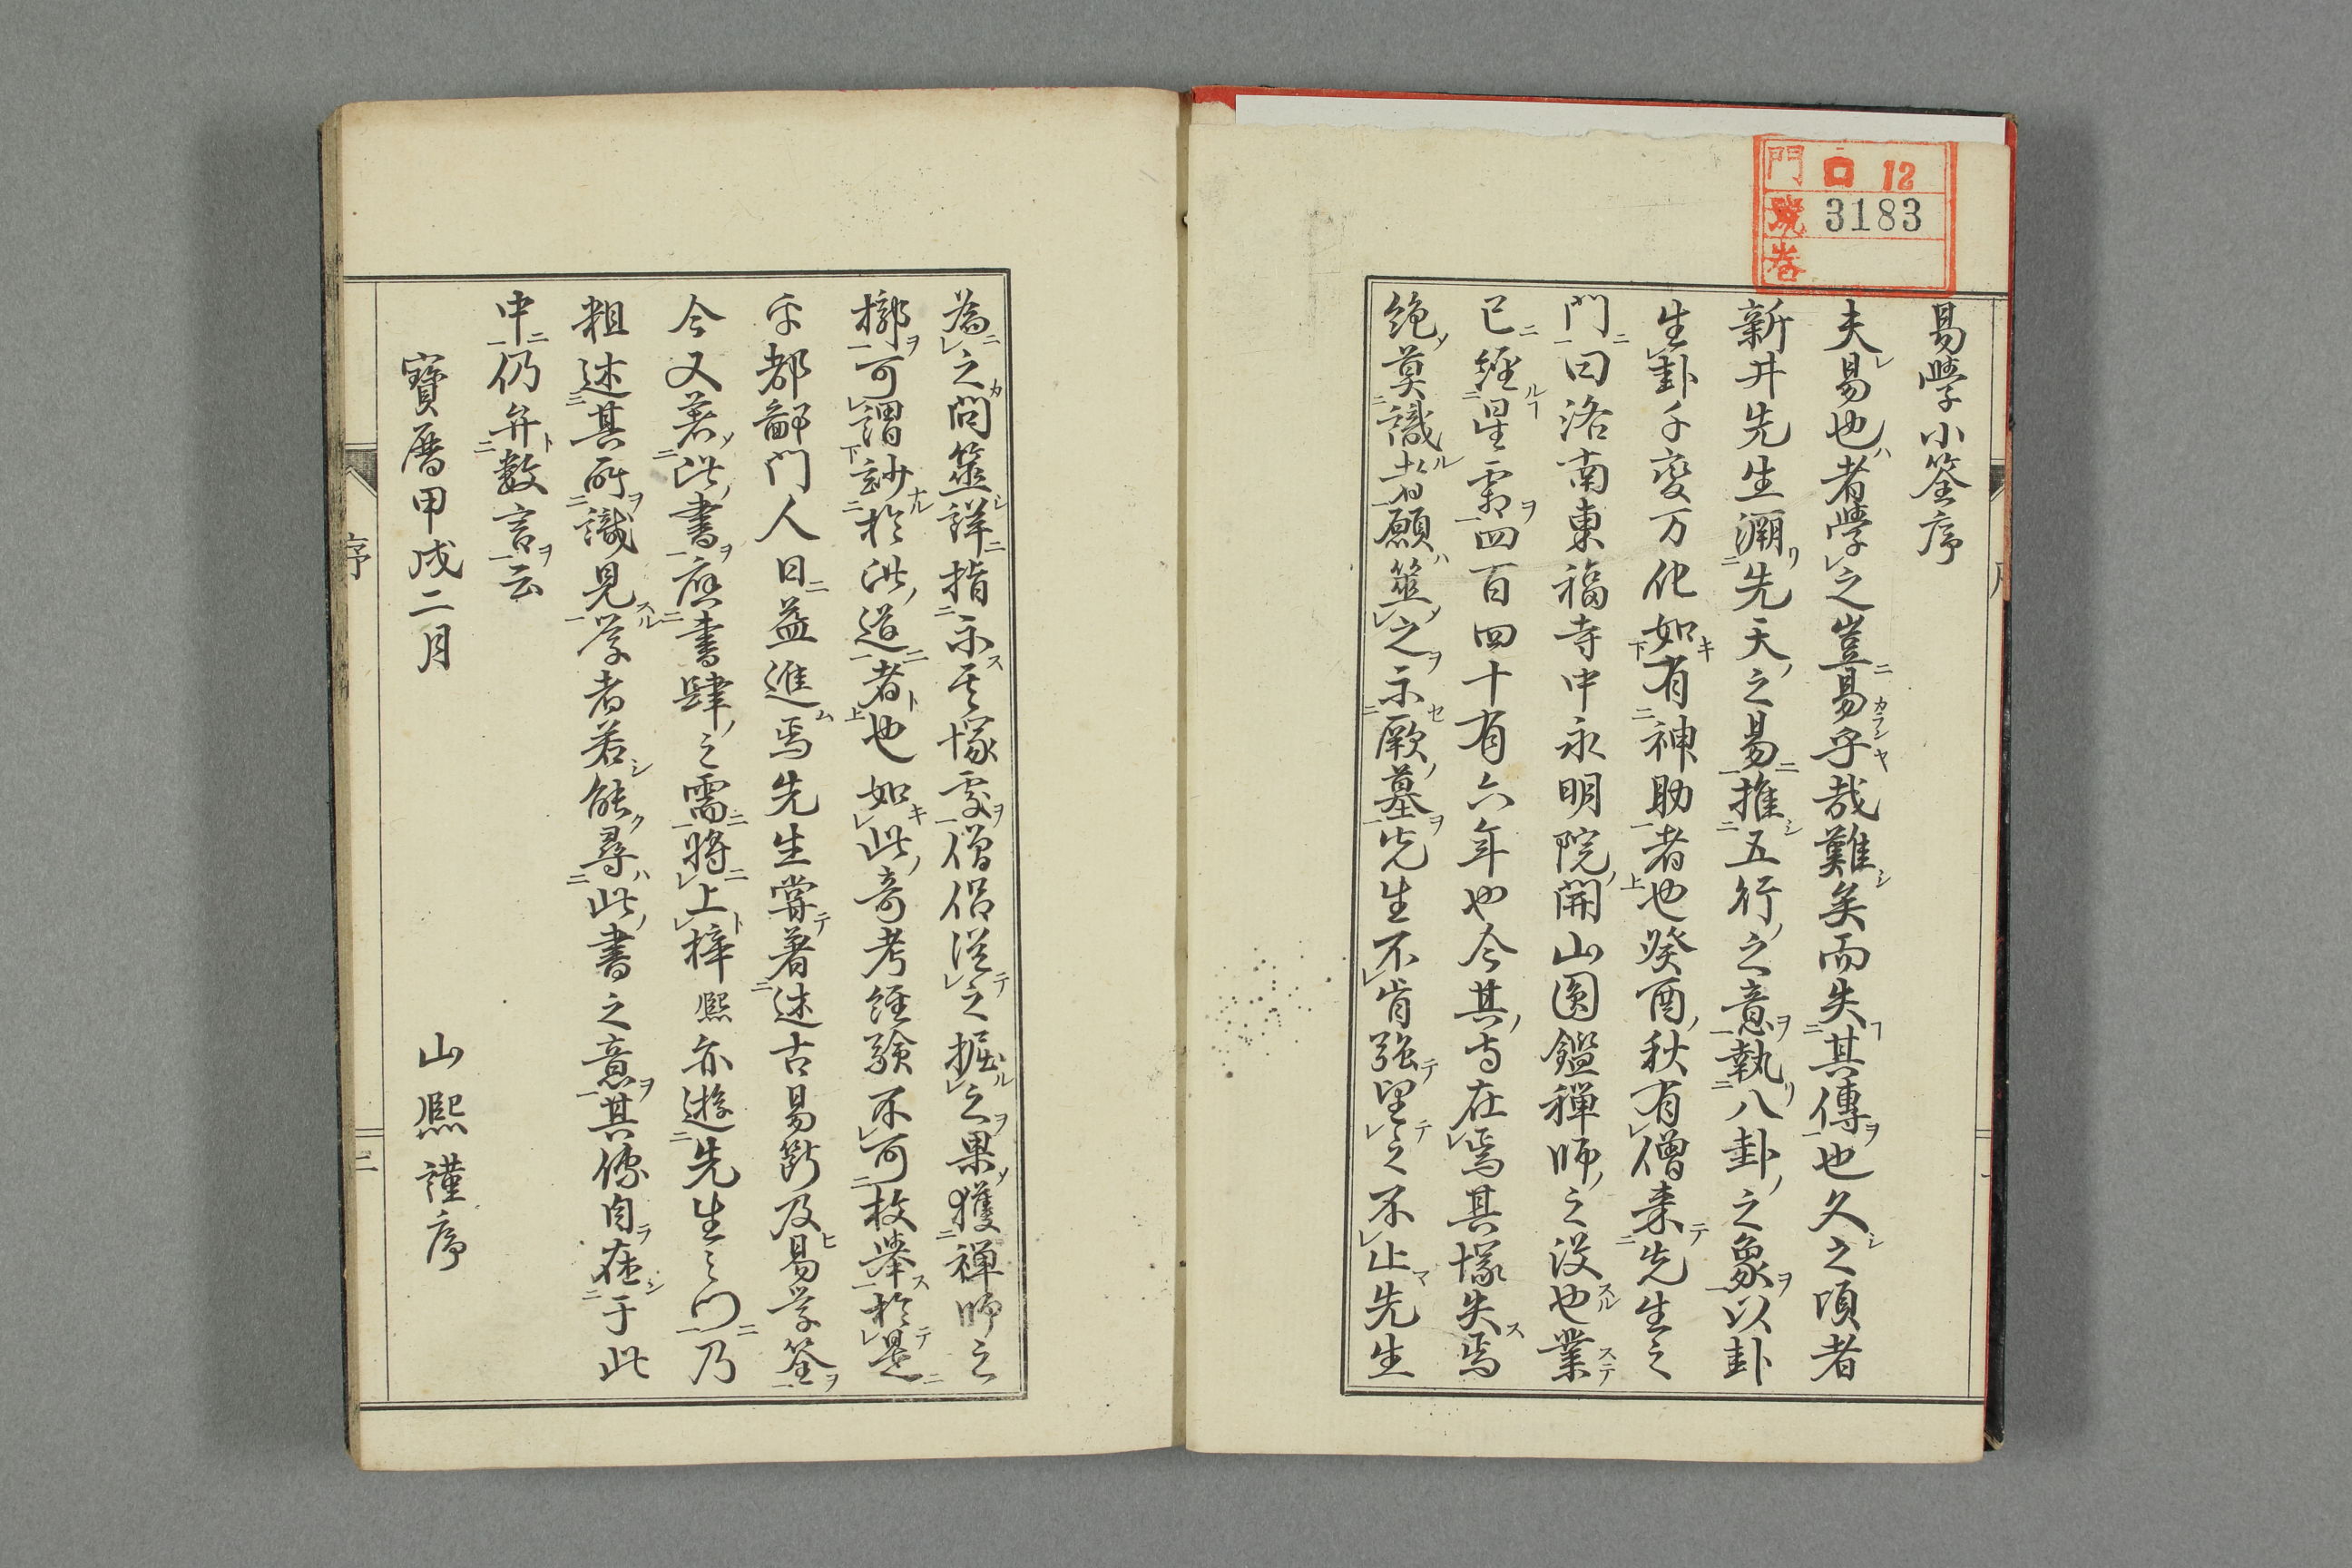 門 口 12
號 3183
卷
易學小筌序
夫易也者學之豈易乎哉難矣而失其傳也久之頃者
新井先生溯先天之易推五行之意執八卦之象以卦
生卦千変万化如有神助者也癸酉秋有僧来先生之
門曰洛南東福寺中永明院開山圓鑑禅師之没也業
已経星霜四百四十有六年也今其寺在焉其塚失焉
絶莫識者願筮之示厥墓先生不肯强望之不止先生
為之問筮詳指示其塚處僧侶従之掘之果獲禅師之
槨可謂妙於洪道者也如此奇考経験不可枚挙於是
乎都鄙門人日益進焉先生嘗著述古易断及易学筌
今又著此書應書肆之需将上梓熙亦遊先生之門乃
粗述其所識見学者若能尋此書之意其像自在于此
中仍弁數言云
寶暦甲戌二月
山熙謹序
序
二